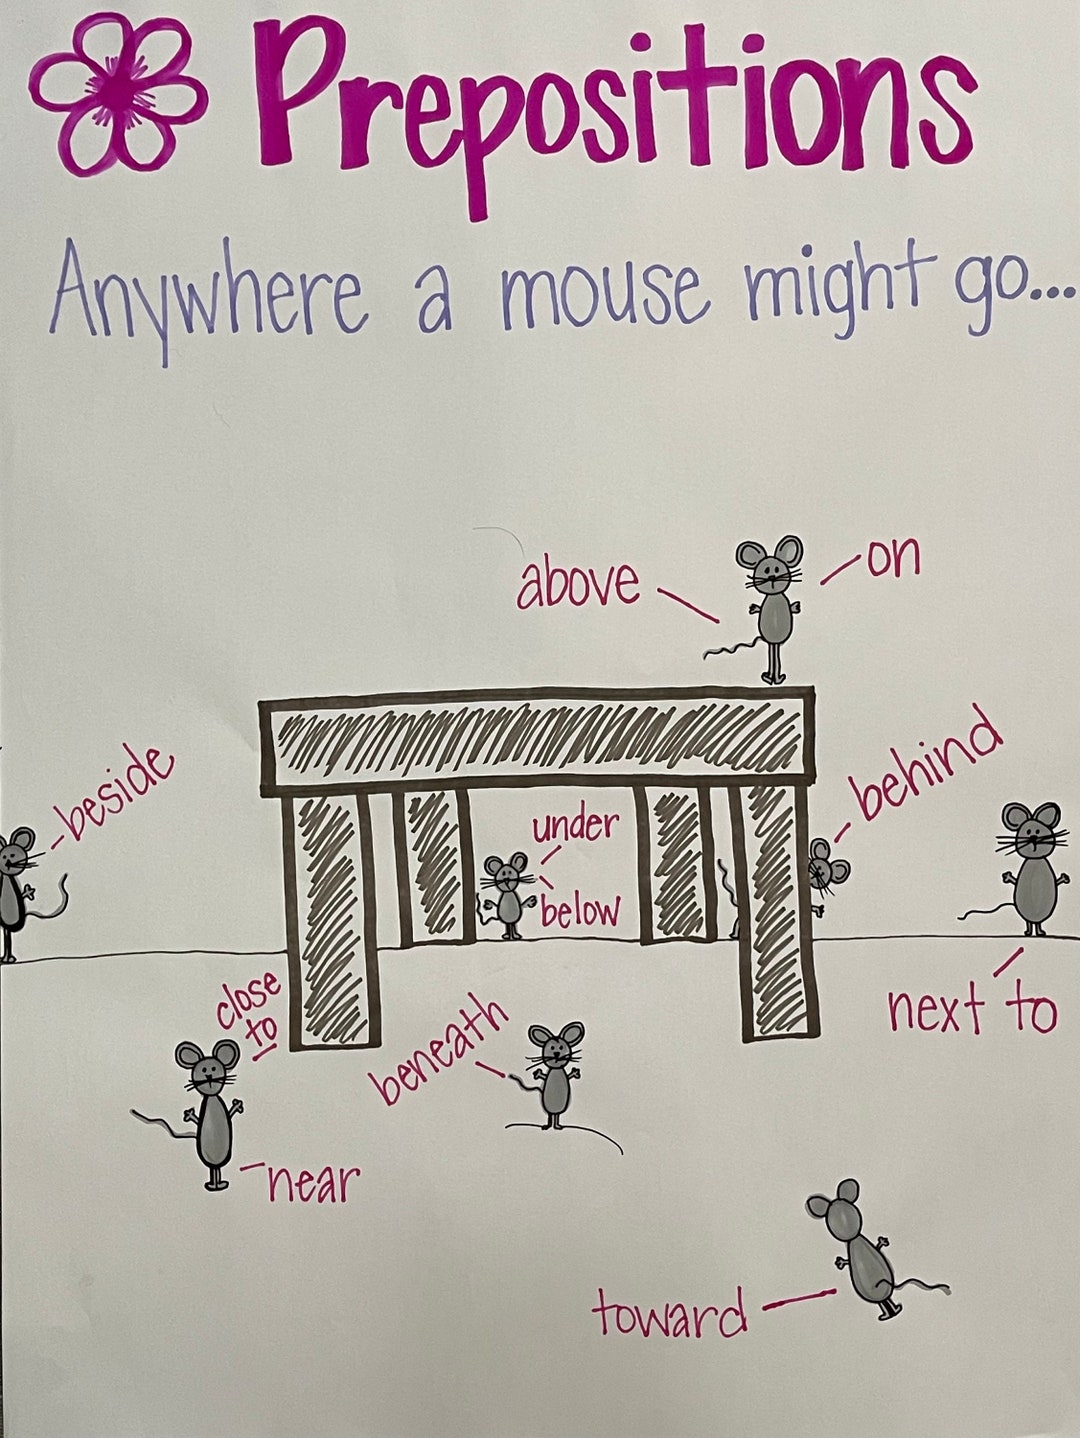 Prepositions
Anywhere a mouse might go...
above
on
beside
behind
under
below
next to
close
to
beneath
near
toward